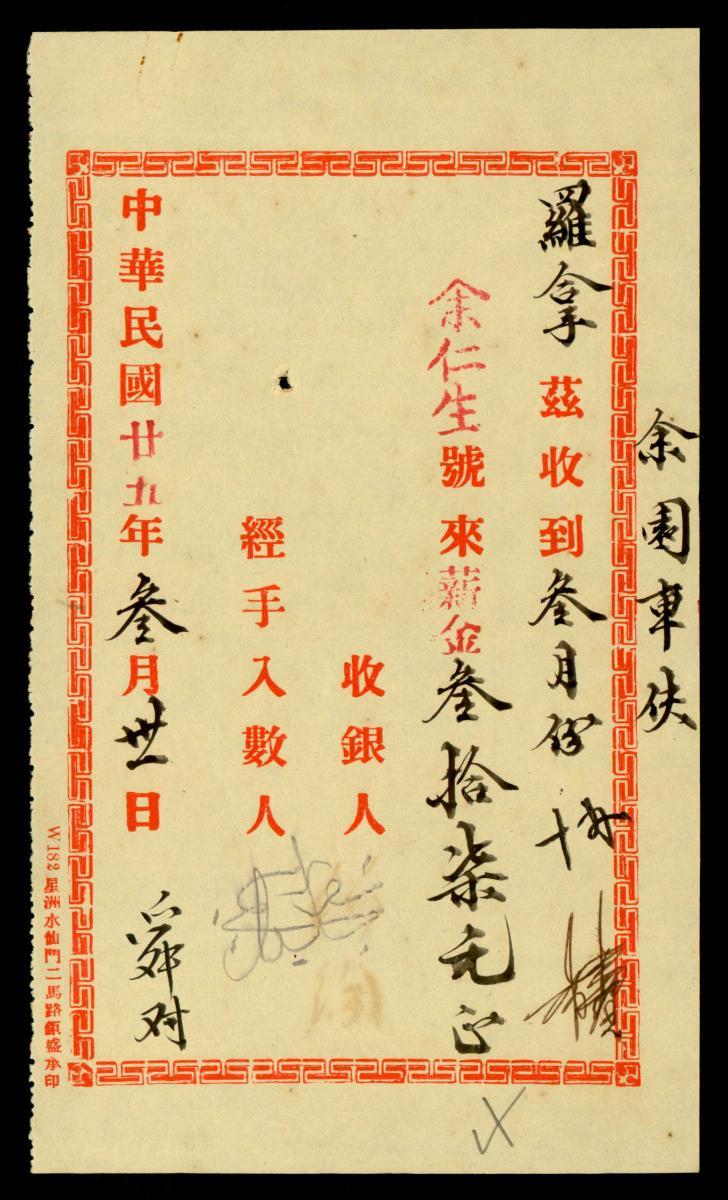 余園車伕
羅拿茲收到叁月份
余仁生號來薪金叁拾柒元正
收銀人
經手入數人
中華民國廿九年叁月卅一日
W182 星洲水仙門二馬路顗盛承印